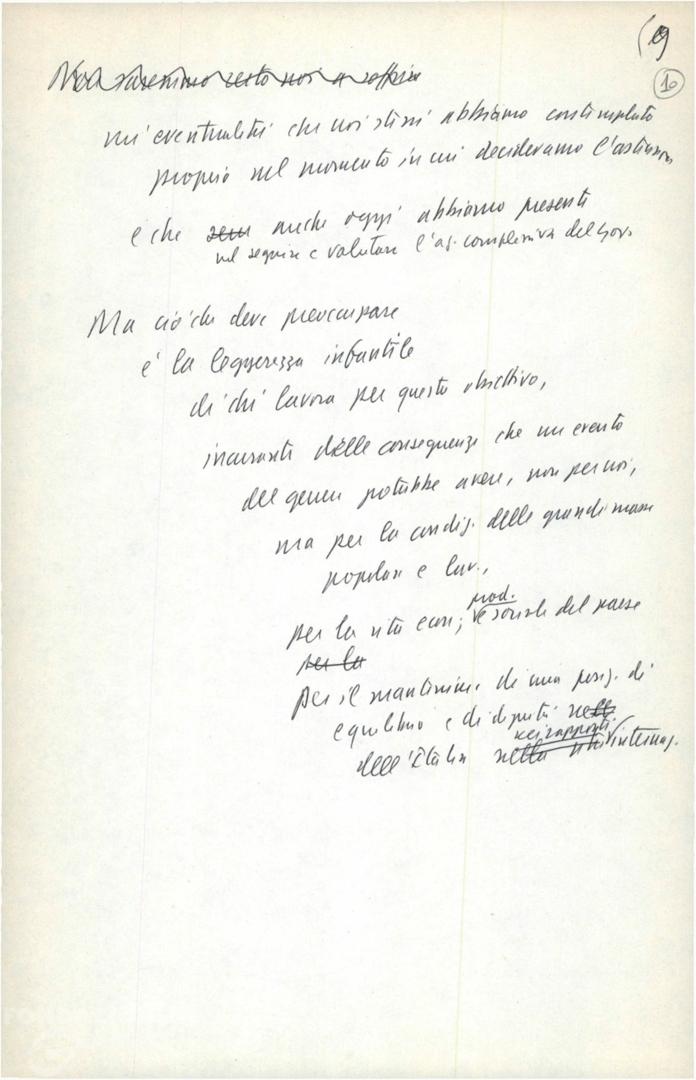 19
10
Non saremmo certo noi a soffrire
un'eventualità che noi stessi abbiamo contemplato
proprio nel momento in cui decidevamo l'astensione
e che sem anche oggi abbiamo presenti
nel seguire e valutare l'az. complessiva del gov.
Ma ciò che deve preoccupare
è la leggerezza infantile
di chi lavora per questo obiettivo,
incuranti delle conseguenze che un evento
del genere potrebbe avere, non per noi,
ma per la condiz. delle grandi masse
popolari e lav.,
per la vita econ., prod. e sociale del paese
per la
per il mantenim. di una posiz. di
equilibrio e di dignità nell
dell'Italia nella vita nei rapporti internaz.